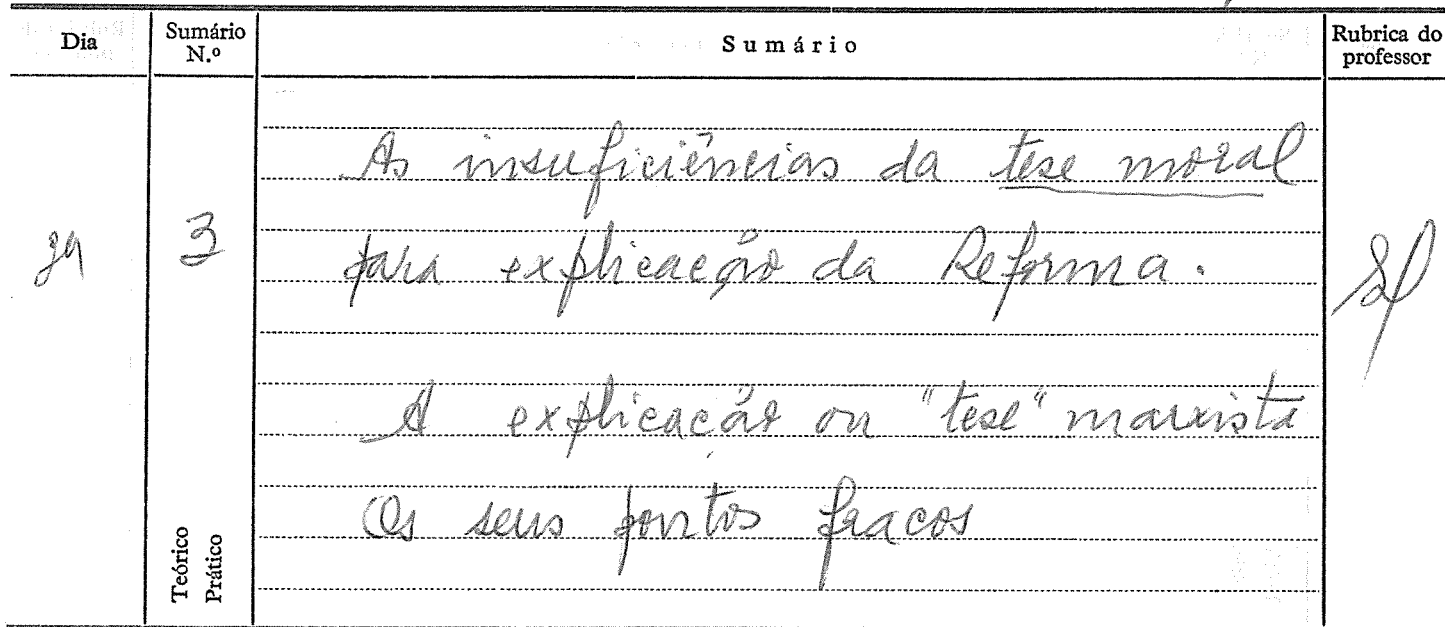 Dia Sumário N.º Sumário Rubrica do professor
As insuficiências da tese moral
29 3 para explicação da Reforma.
A explicação ou "tese" marxista
Os seus pontos fracos
Teórico
Prático